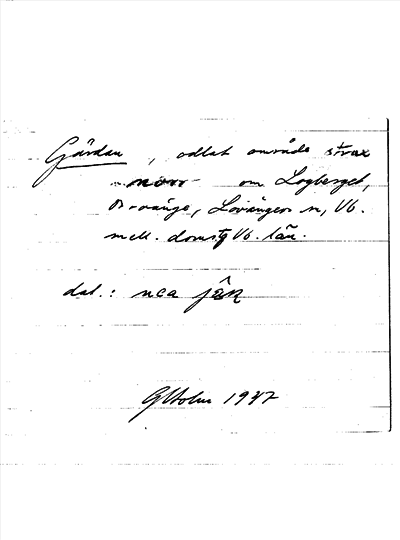 Gärdan, odlat område strax
norr om Logberget,
Lövånger sn, Vb.
mell. doms. Vb. län.
dat.:
GHolm 1947